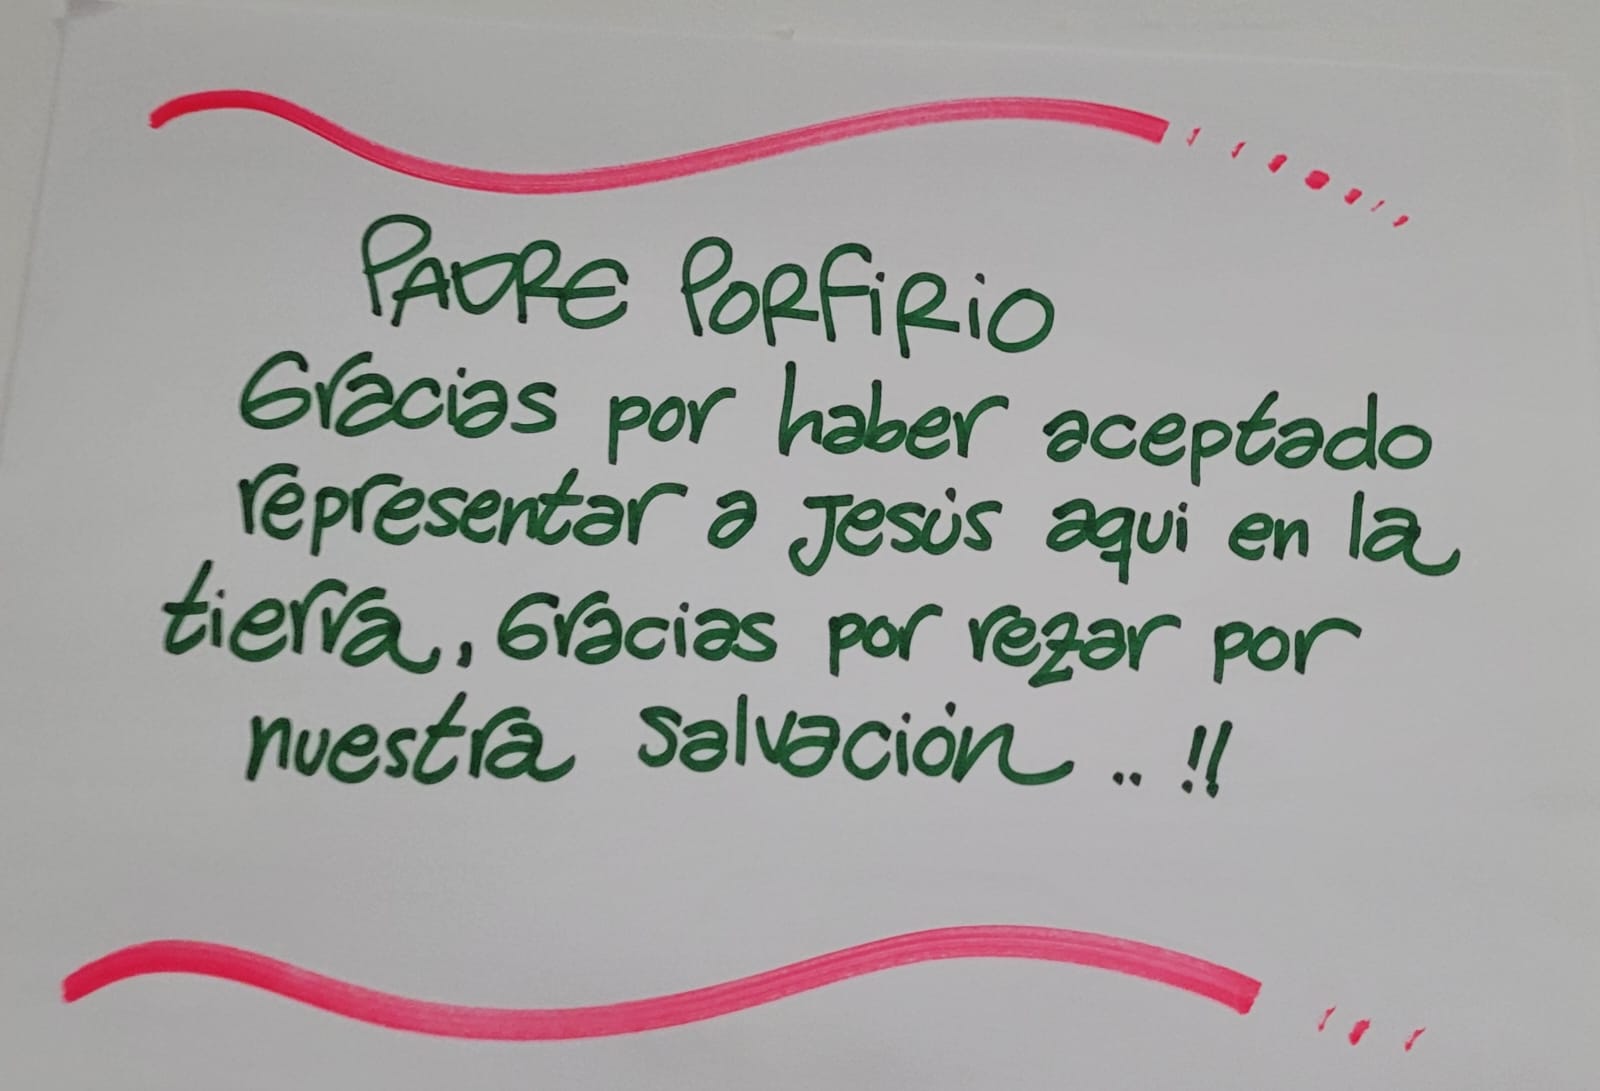 PADRE PORFIRIO
Gracias por haber aceptado
representar a Jesús aqui en la
tierra, Gracias por rezar por
nuestra salvación .. !!